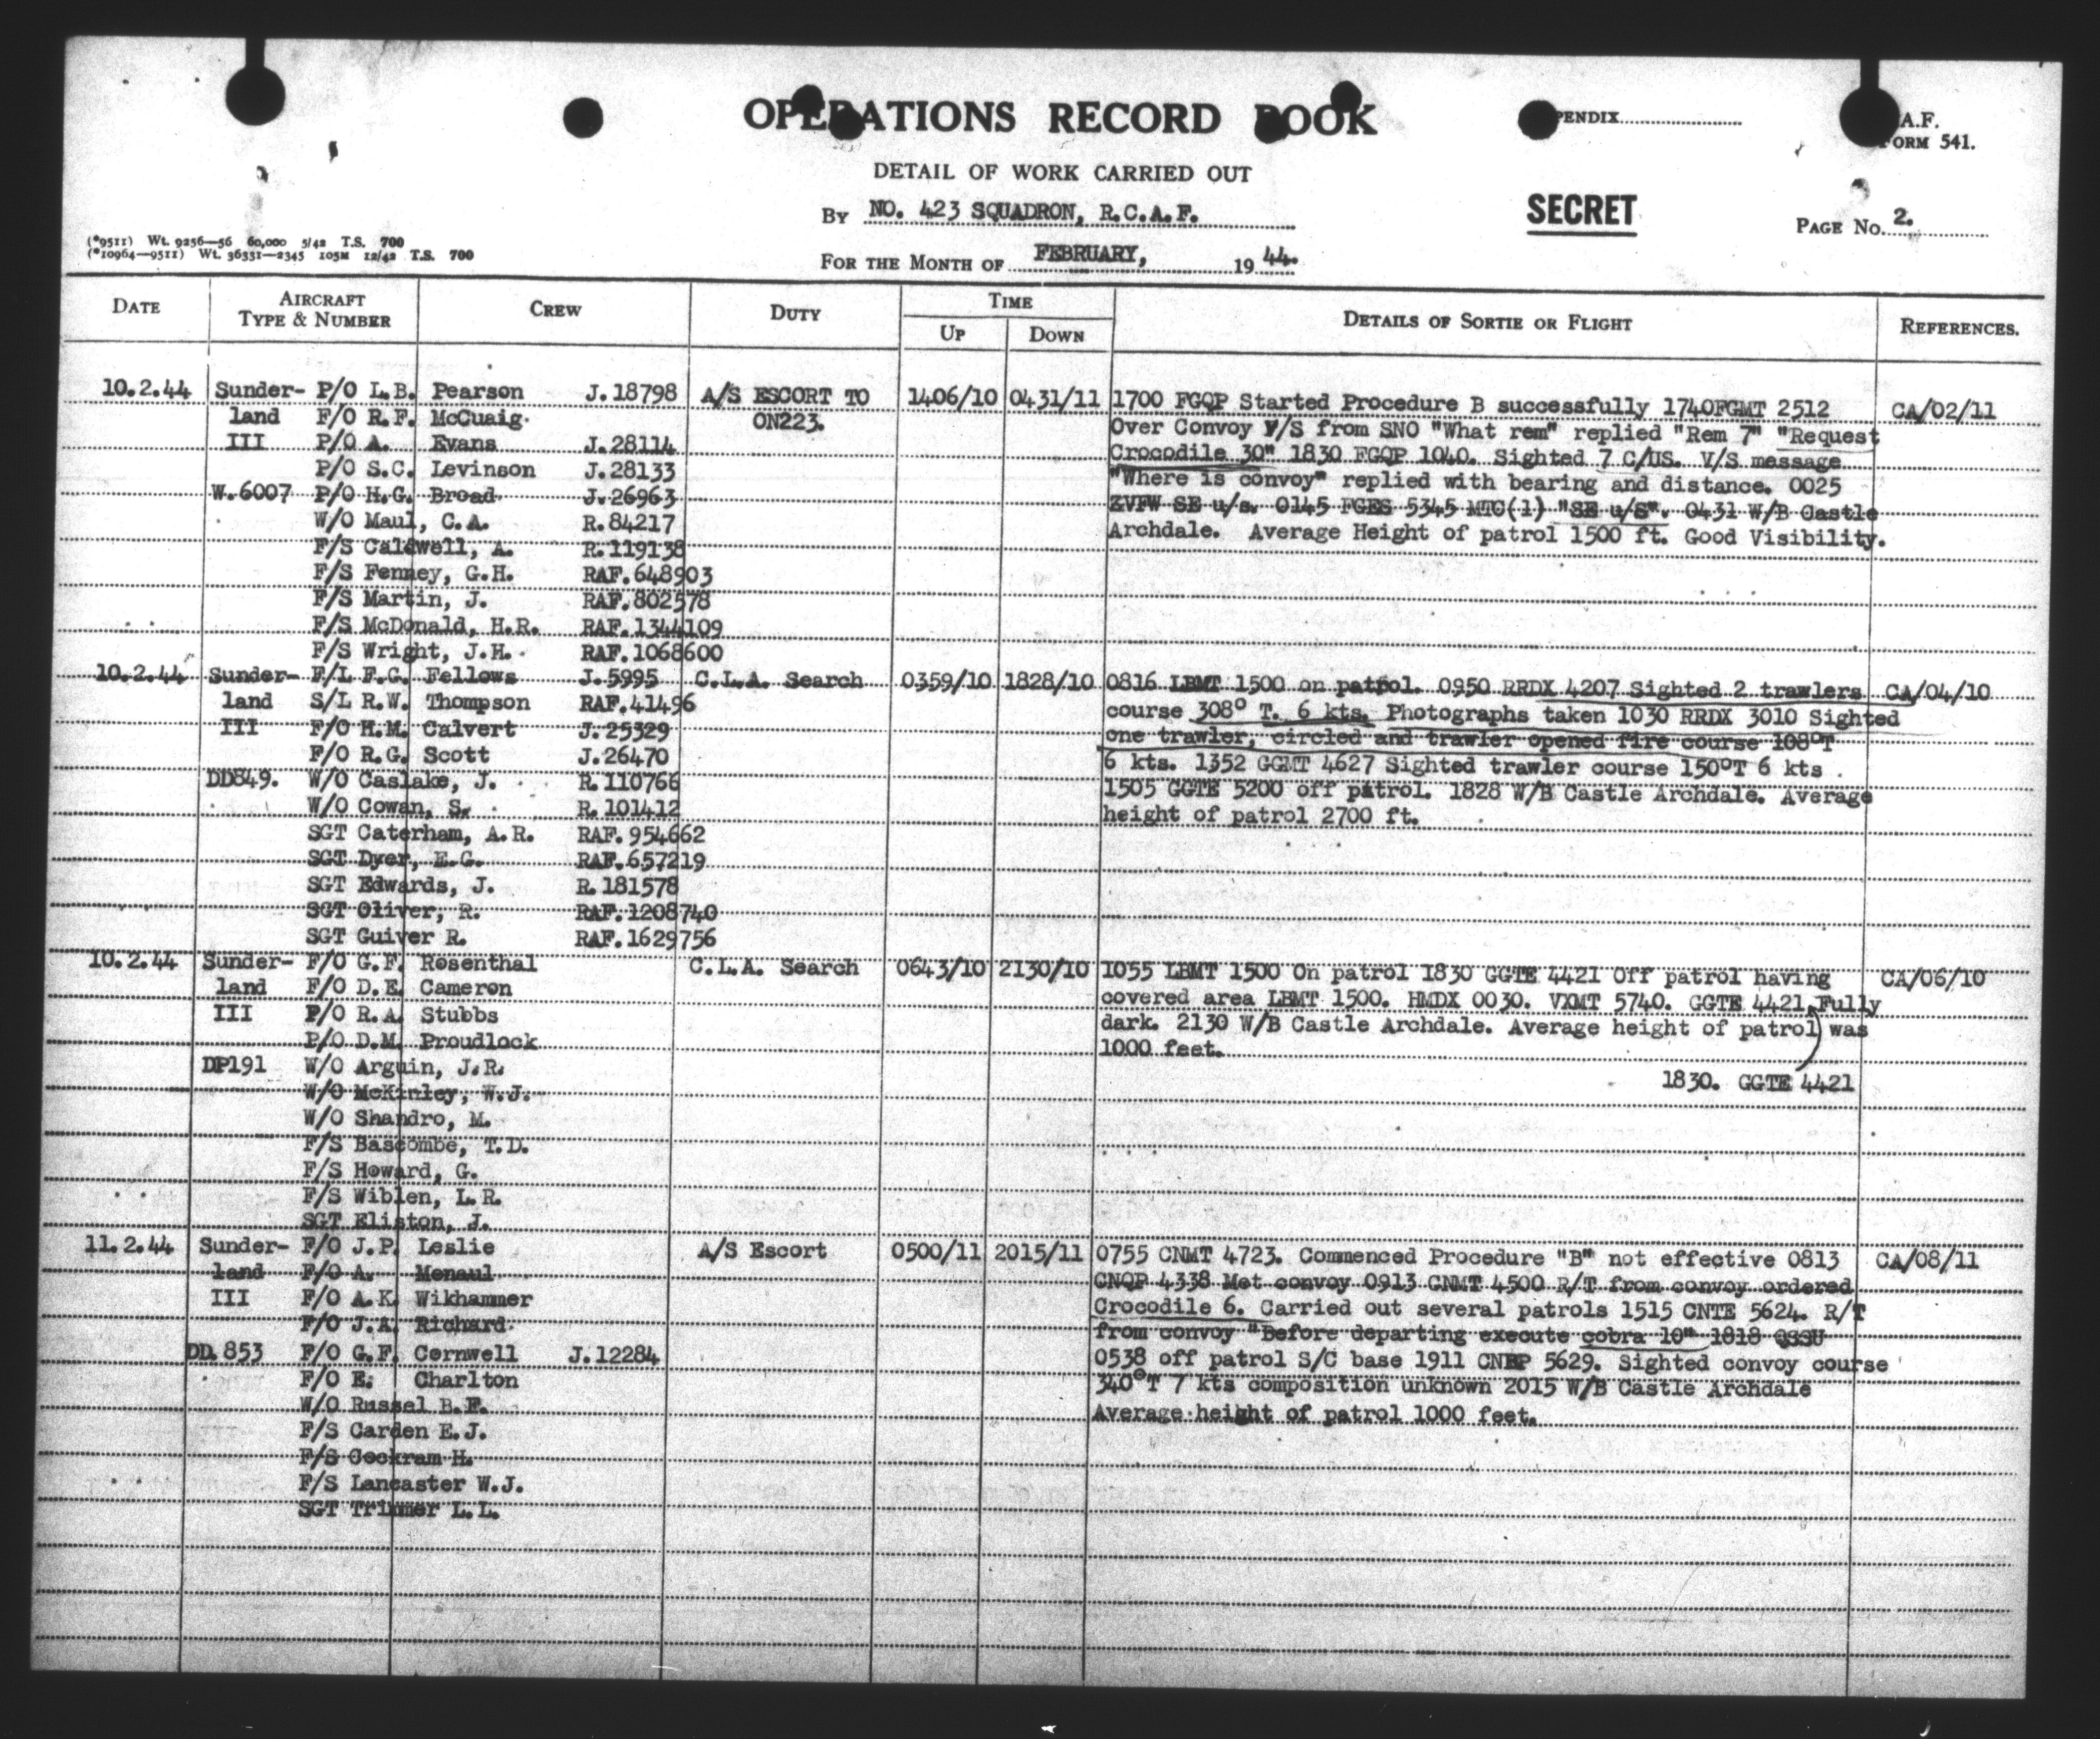 OPERATIONS RECORD BOOK
PENDIX
A.F.
FORM 541.
DETAIL OF WORK CARRIED OUT
By NO. 423 SQUADRON, R.C.A.F.
SECRET
PAGE No. 2.
(*9511) Wt. 9256—56 60,000 5/42 T.S. 700
(*10964—9511) Wt. 36331—2345 105M 12/42 T.S. 700
FOR THE MONTH OF FEBRUARY, 1944.
DATE AIRCRAFT TYPE & NUMBER CREW DUTY TIME UP DOWN DETAILS OF SORTIE OR FLIGHT REFERENCES.
10.2.44 Sunder- P/O L.B. Pearson J.18798 A/S ESCORT TO 1406/10 0431/11 1700 FGQP Started Procedure B successfully 1740FGMT 2512 CA/02/11
land F/O R.F. McCuaig. ON223. Over Convoy V/S from SNO "What rem" replied "Rem 7" "Request
III P/O A. Evans J.28114 Crocodile 30" 1830 FGQP 1040. Sighted 7 C/US. V/S message
P/O S.C. Levinson J.28133 "Where is convoy" replied with bearing and distance. 0025
W.6007 P/O H.G. Broad J.26963 ZVFW SE u/s. 0145 FGES 5345 MTC(1) "SE u/S". 0431 W/B Castle
W/O Maul, C.A. R.84217 Archdale. Average Height of patrol 1500 ft. Good Visibility.
F/S Caldwell, A. R.119138
F/S Fenney, G.H. RAF.648903
F/S Martin, J. RAF.802578
F/S McDonald, H.R. RAF.1344109
F/S Wright, J.H. RAF.1068600
10.2.44 Sunder- F/L F.G. Fellows J.5995 C.L.A. Search 0359/10 1828/10 0816 LBMT 1500 on patrol. 0950 RRDX 4207 Sighted 2 trawlers CA/04/10
land S/L R.W. Thompson RAF.41496 course 308° T. 6 kts. Photographs taken 1030 RRDX 3010 Sighted
III F/O H.M. Calvert J.25329 one trawler, circled and trawler opened fire course 108°T
F/O R.G. Scott J.26470 6 kts. 1352 GGMT 4627 Sighted trawler course 150°T 6 kts .
DD849. W/O Caslake, J. R.110766 1505 GGTE 5200 off patrol. 1828 W/B Castle Archdale. Average
W/O Cowan, S. R.101412 height of patrol 2700 ft.
SGT Caterham, A.R. RAF.954662
SGT Dyer, E.G. RAF.657219
SGT Edwards, J. R.181578
SGT Oliver, R. RAF.1208740
SGT Guiver R. RAF.1629756
10.2.44 Sunder- F/O G.F. Rosenthal C.L.A. Search 0643/10 2130/10 1055 LBMT 1500 On patrol 1830 GGTE 4421 Off patrol having CA/06/10
land F/O D.E. Cameron covered area LBMT 1500. HMDX 0030. VXMT 5740. GGTE 4421 Fully
III P/O R.A. Stubbs dark. 2130 W/B Castle Archdale. Average height of patrol was
P/O D.M. Proudlock 1000 feet.
DP191 W/O Arguin, J.R. 1830. GGTE 4421
W/O McKinley, W.J.
W/O Shandro, M.
F/S Bascombe, T.D.
F/S Howard, G.
F/S Wiblen, L.R.
SGT Eliston, J.
11.2.44 Sunder- F/O J.P. Leslie A/S Escort 0500/11 2015/11 0755 CNMT 4723. Commenced Procedure "B" not effective 0813 CA/08/11
land F/O A. Menaul CNQP 4338 Met convoy 0913 CNMT 4500 R/T from convoy ordered
III F/O A.K. Wikhammer Crocodile 6. Carried out several patrols 1515 CNTE 5624. R/T
F/O J.A. Richard. from convoy "Before departing execute cobra 10" 1818 QSSU
DD.853 F/O G.F. Cornwell J.12284 0538 off patrol S/C base 1911 CNBP 5629. Sighted convoy course
F/O E. Charlton 340°T 7 kts composition unknown 2015 W/B Castle Archdale
W/O Russel B.F. Average height of patrol 1000 feet.
F/S Carden E.J.
F/S Cockram H.
F/S Lancaster W.J.
SGT Trimmer L.L.